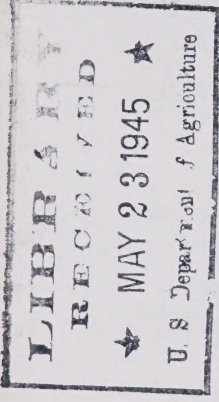 LIBRARY
RECEIVED
★ MAY 23 1945 ★
U. S. Department of Agriculture